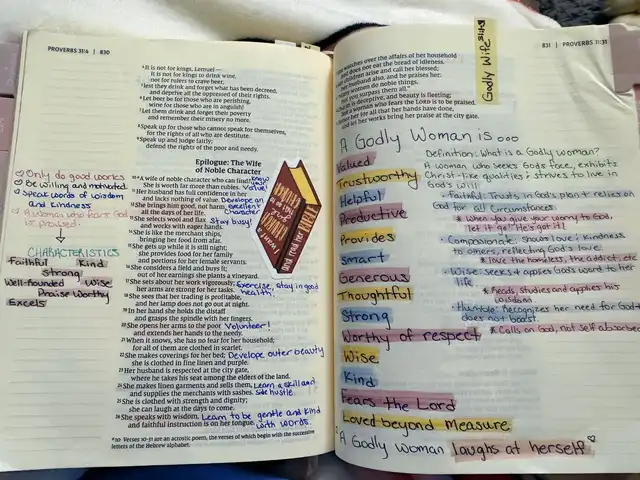 PROVERBS 31:4 | 830
4 It is not for kings, Lemuel—
it is not for kings to drink wine,
not for rulers to crave beer,
5 lest they drink and forget what has been decreed,
and deprive all the oppressed of their rights.
6 Let beer be for those who are perishing,
wine for those who are in anguish!
7 Let them drink and forget their poverty
and remember their misery no more.
8 Speak up for those who cannot speak for themselves,
for the rights of all who are destitute.
9 Speak up and judge fairly;
defend the rights of the poor and needy.
Epilogue: The Wife
of Noble Character
10 *A wife of noble character who can find? know your
She is worth far more than rubies. Value!
11 Her husband has full confidence in her
and lacks nothing of value. Develop an
12 She brings him good, not harm, excellent
all the days of her life. Character
13 She selects wool and flax Stay busy!
and works with eager hands.
14 She is like the merchant ships,
bringing her food from afar.
15 She gets up while it is still night;
she provides food for her family
and portions for her female servants.
16 She considers a field and buys it;
out of her earnings she plants a vineyard.
17 She sets about her work vigorously; Exercise, stay in good
her arms are strong for her tasks. health.
18 She sees that her trading is profitable,
and her lamp does not go out at night.
19 In her hand she holds the distaff
and grasps the spindle with her fingers.
20 She opens her arms to the poor Volunteer!
and extends her hands to the needy.
21 When it snows, she has no fear for her household;
for all of them are clothed in scarlet.
22 She makes coverings for her bed; Develope outer beauty
she is clothed in fine linen and purple.
23 Her husband is respected at the city gate,
where he takes his seat among the elders of the land.
24 She makes linen garments and sells them, Learn a skill and
and supplies the merchants with sashes. side hustle.
25 She is clothed with strength and dignity;
she can laugh at the days to come.
26 She speaks with wisdom, Learn to be gentle and kind
and faithful instruction is on her tongue. with words.
*10 Verses 10-31 are an acrostic poem, the verses of which begin with the successive
letters of the Hebrew alphabet.
Only do good works
Be willing and motivated
Speak words of wisdom
and kindness
A woman who fears God
is praised.
CHARACTERISTICS
Faithful Kind
Strong
Well-rounded Wise
Praise Worthy
Excels
831 | PROVERBS 31:31
watches over the affairs of her household
and does not eat the bread of idleness.
children arise and call her blessed;
her husband also, and he praises her:
women do noble things,
but you surpass them all."
is deceptive, and beauty is fleeting;
but a woman who fears the LORD is to be praised.
her for all that her hands have done,
and let her works bring her praise at the city gate.
Godly Wife
A Godly Woman is ...
Valued
Trustworthy
Helpful
Productive
Provides
Smart
Generous
Thoughtful
Strong
Worthy of respect
Wise
Kind
Fears the Lord
Loved beyond Measure
A Godly woman laughs at herself
Definition: What is a Godly woman?
A woman who seeks God's face, exhibits
Christ-like qualities & strives to live in
God's will
Faithful: Trusts in God's plan & relies on
God for all circumstances
* When you give your worry to God,
let it go! He's got it!
Compassionate: Shows love & kindness
to others, reflecting God's love.
the homeless, the addict, etc
Wise: Seeks & applies God's word to her
life
* Reads, studies and applies his
wisdom
Humble: Recognizes her need for God
does not boast.
* Calls on God, not self absorbed